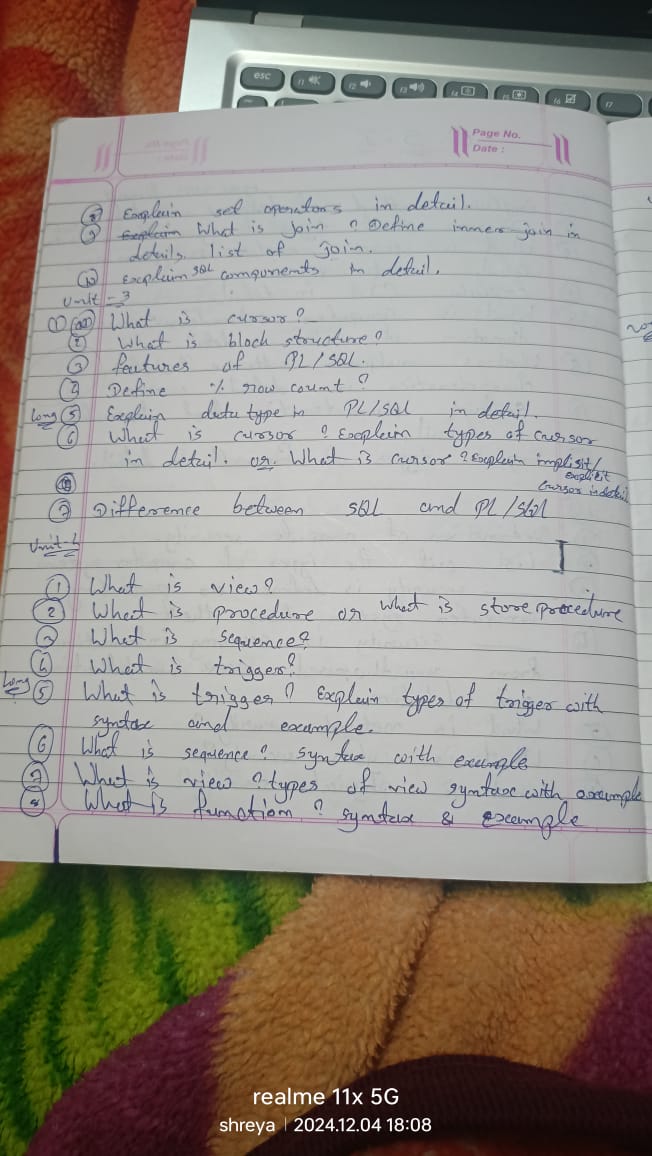 esc
F1
F2
F3
F4
F5
F6
F7
Page No.
Date :
⑧ Explain set operators in detail.
⑨ Explain What is join ? Define inner join in
details, list of join.
⑩ explain SQL components in detail.
Unit - 3
① What is cursor?
② What is block structure?
③ features of PL/SQL.
④ Define % row count ?
Long ⑤ Explain data type in PL/SQL in detail.
⑥ What is cursor ? Explain types of cursor
in detail. or. What is cursor ? Explain implisit/
explicit
cursor in detail
⑦ Difference between SQL and PL/SQL
Unit-4
① What is view?
② What is procedure or what is store procedure
③ What is sequence?
④ What is trigger?
Long ⑤ What is trigger ? Explain types of trigger with
syntax and example.
⑥ What is sequence? syntax with example
⑦ What is view ? types of view syntax with example
⑧ What is function ? syntax & example
realme 11x 5G
shreya | 2024.12.04 18:08